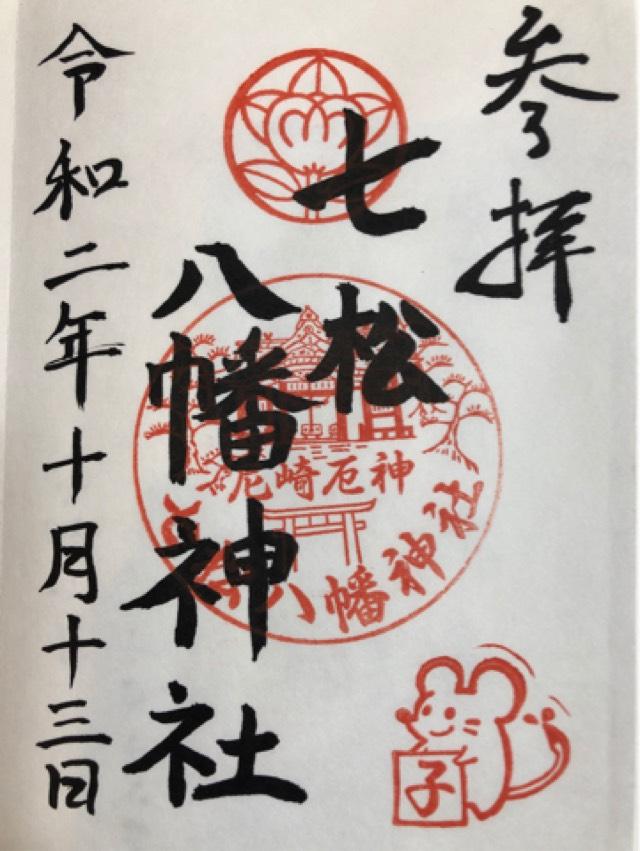 参拝
七松
八幡神社
令和二年十月十三日
尼崎厄神
八幡神社
子